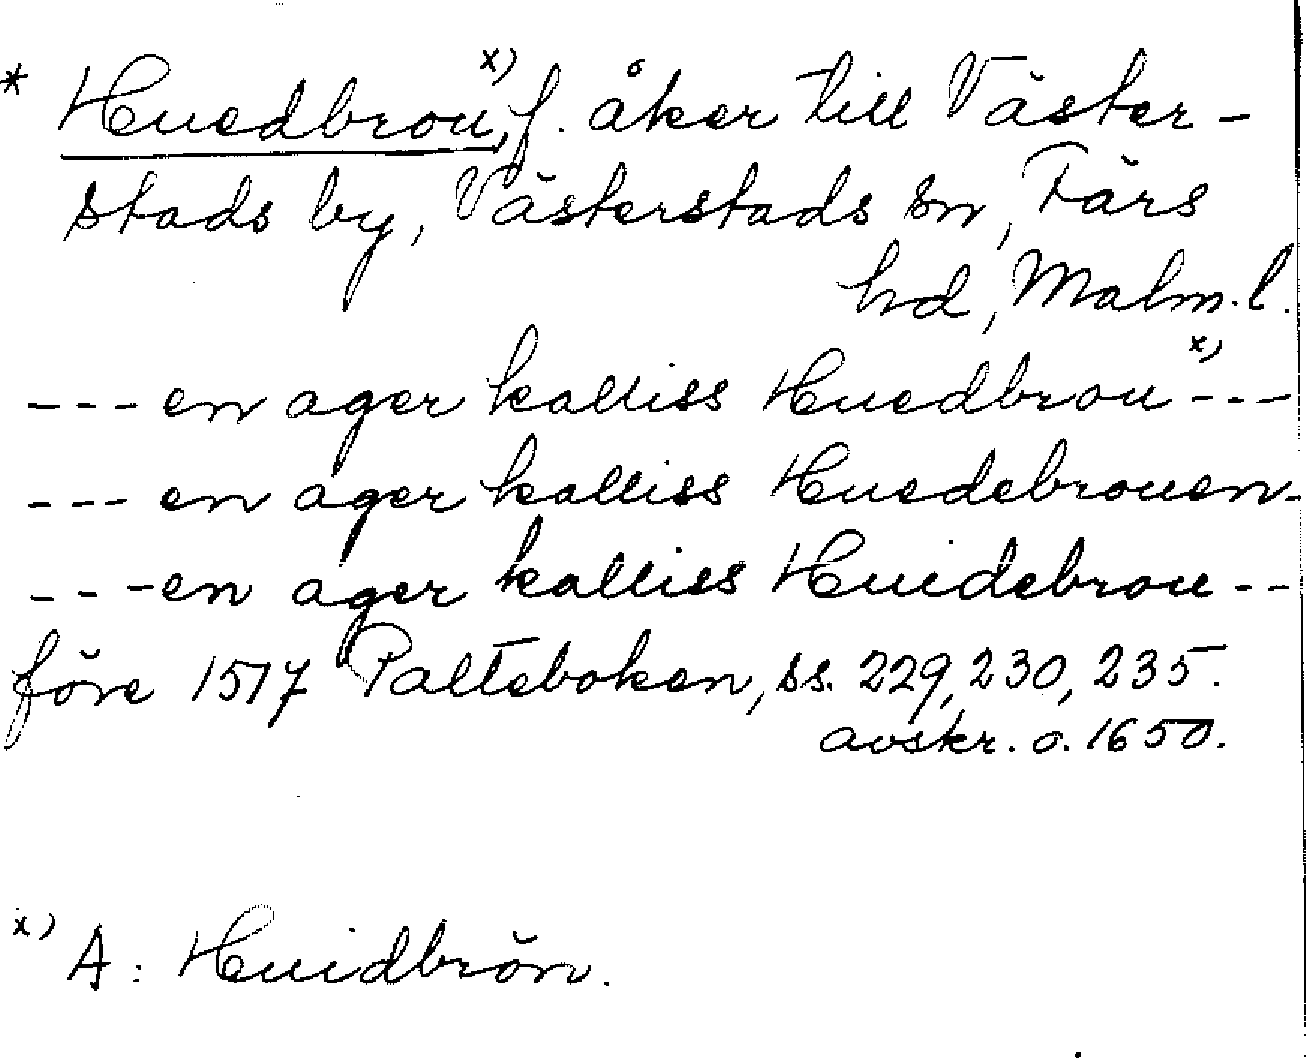 * Huedbrou,ˣ⁾ f. åker till Väster-
stads by, Västerstads sn, Färs
hd, Malm. l.
--- en ager kalliss Huedbrouˣ⁾ ---
--- en ager kalliss Huedebrouen-
---en ager kalliss Huidebrou--
före 1517 Palteboken, ss. 229, 230, 235.
avskr. o. 1650.
ˣ⁾ A: Huidbrön.